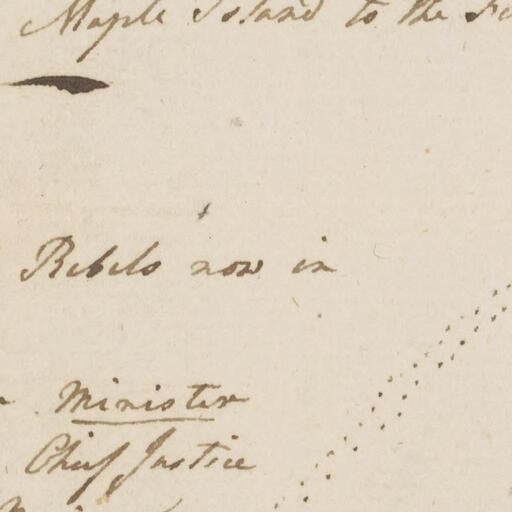 Maple Island to the
Rebels now in
Minister
Chief Justice